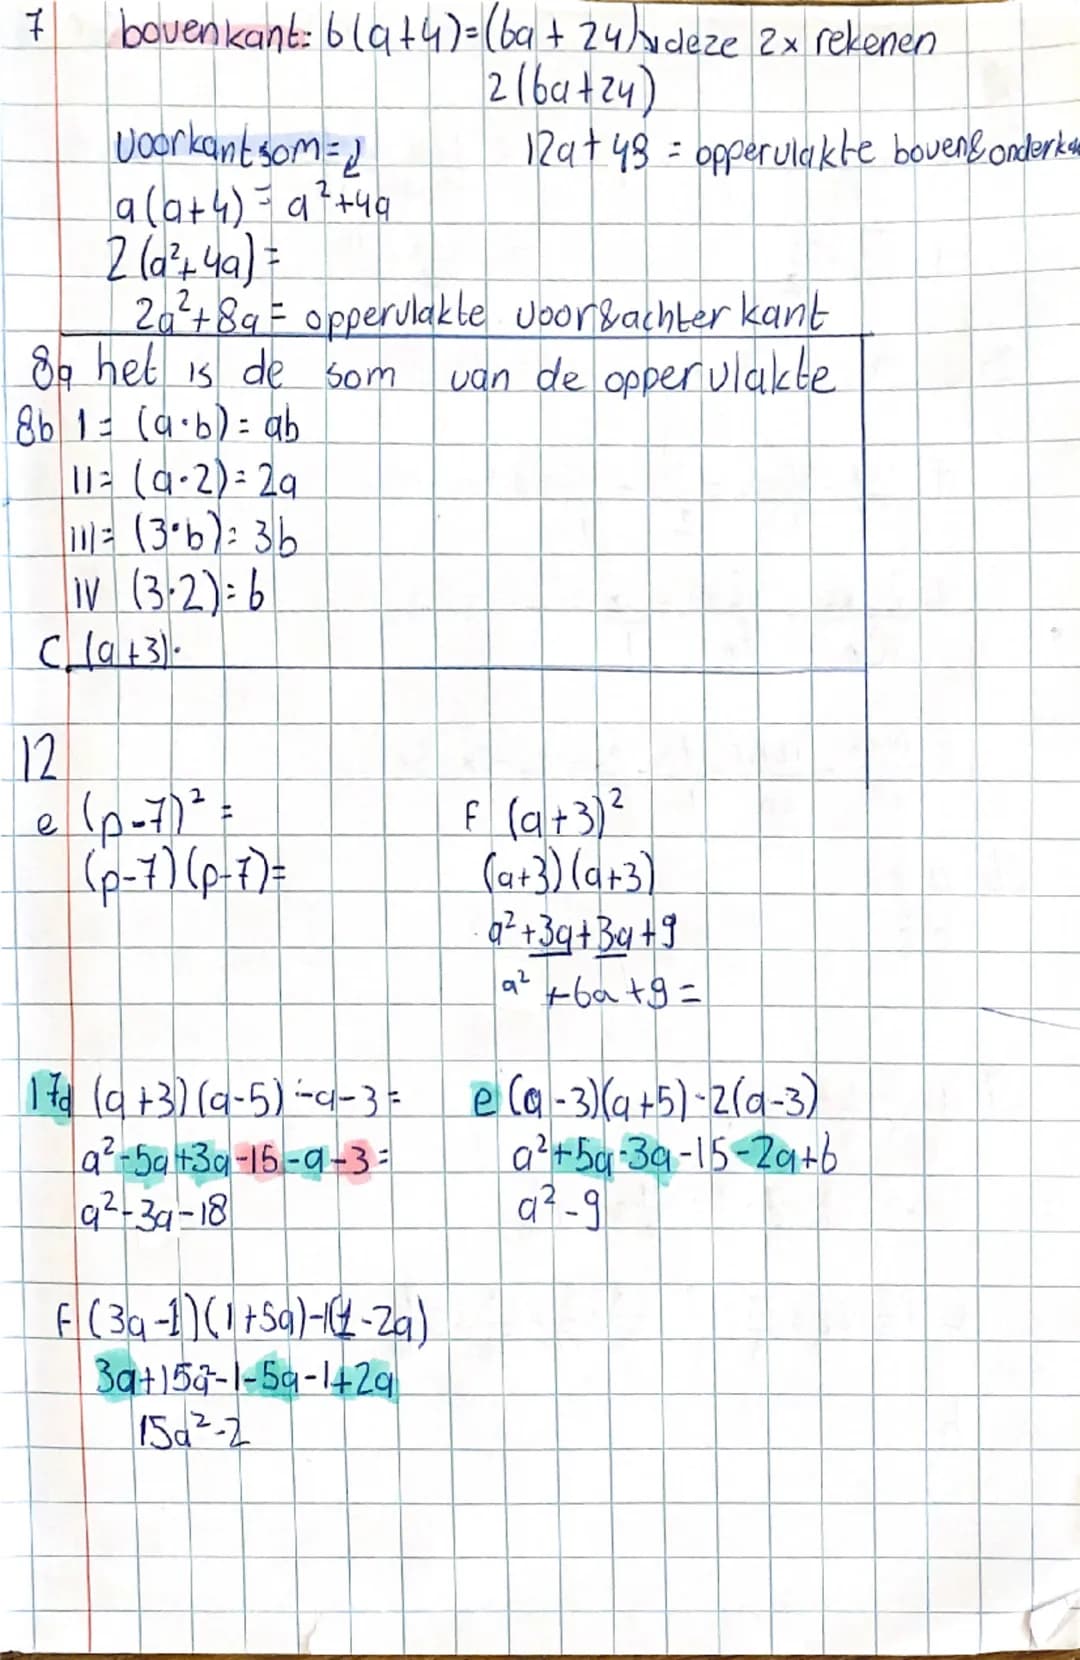 7 bovenkant: 6(a+4)=(6a + 24)↘deze 2x rekenen
2(6a+24)
12a+48 = oppervlakte boven&onderka
voorkant som=↓
a(a+4) = a²+4a
2(a²+4a)=
2a²+8a= oppervlakte voor&achterkant
8a het is de som van de oppervlakte
8b 1= (a·b)= ab
II= (a·2)=2a
III= (3·b)= 3b
IV (3·2)=6
C. (a+3)·
12
e (p-7)² =
(p-7)(p-7)=
F (a+3)²
(a+3)(a+3)
a²+3a+3a+9
a² +6a+9=
17d (a+3)(a-5)-a-3=
a²-5a+3a-15-a-3=
a²-3a-18
e (a-3)(a+5)-2(a-3)
a²+5a-3a-15-2a+6
a²-9
F (3a-1)(1+5a)-1(1-2a)
3a+15a²-1-5a-1+2a
15a²-2